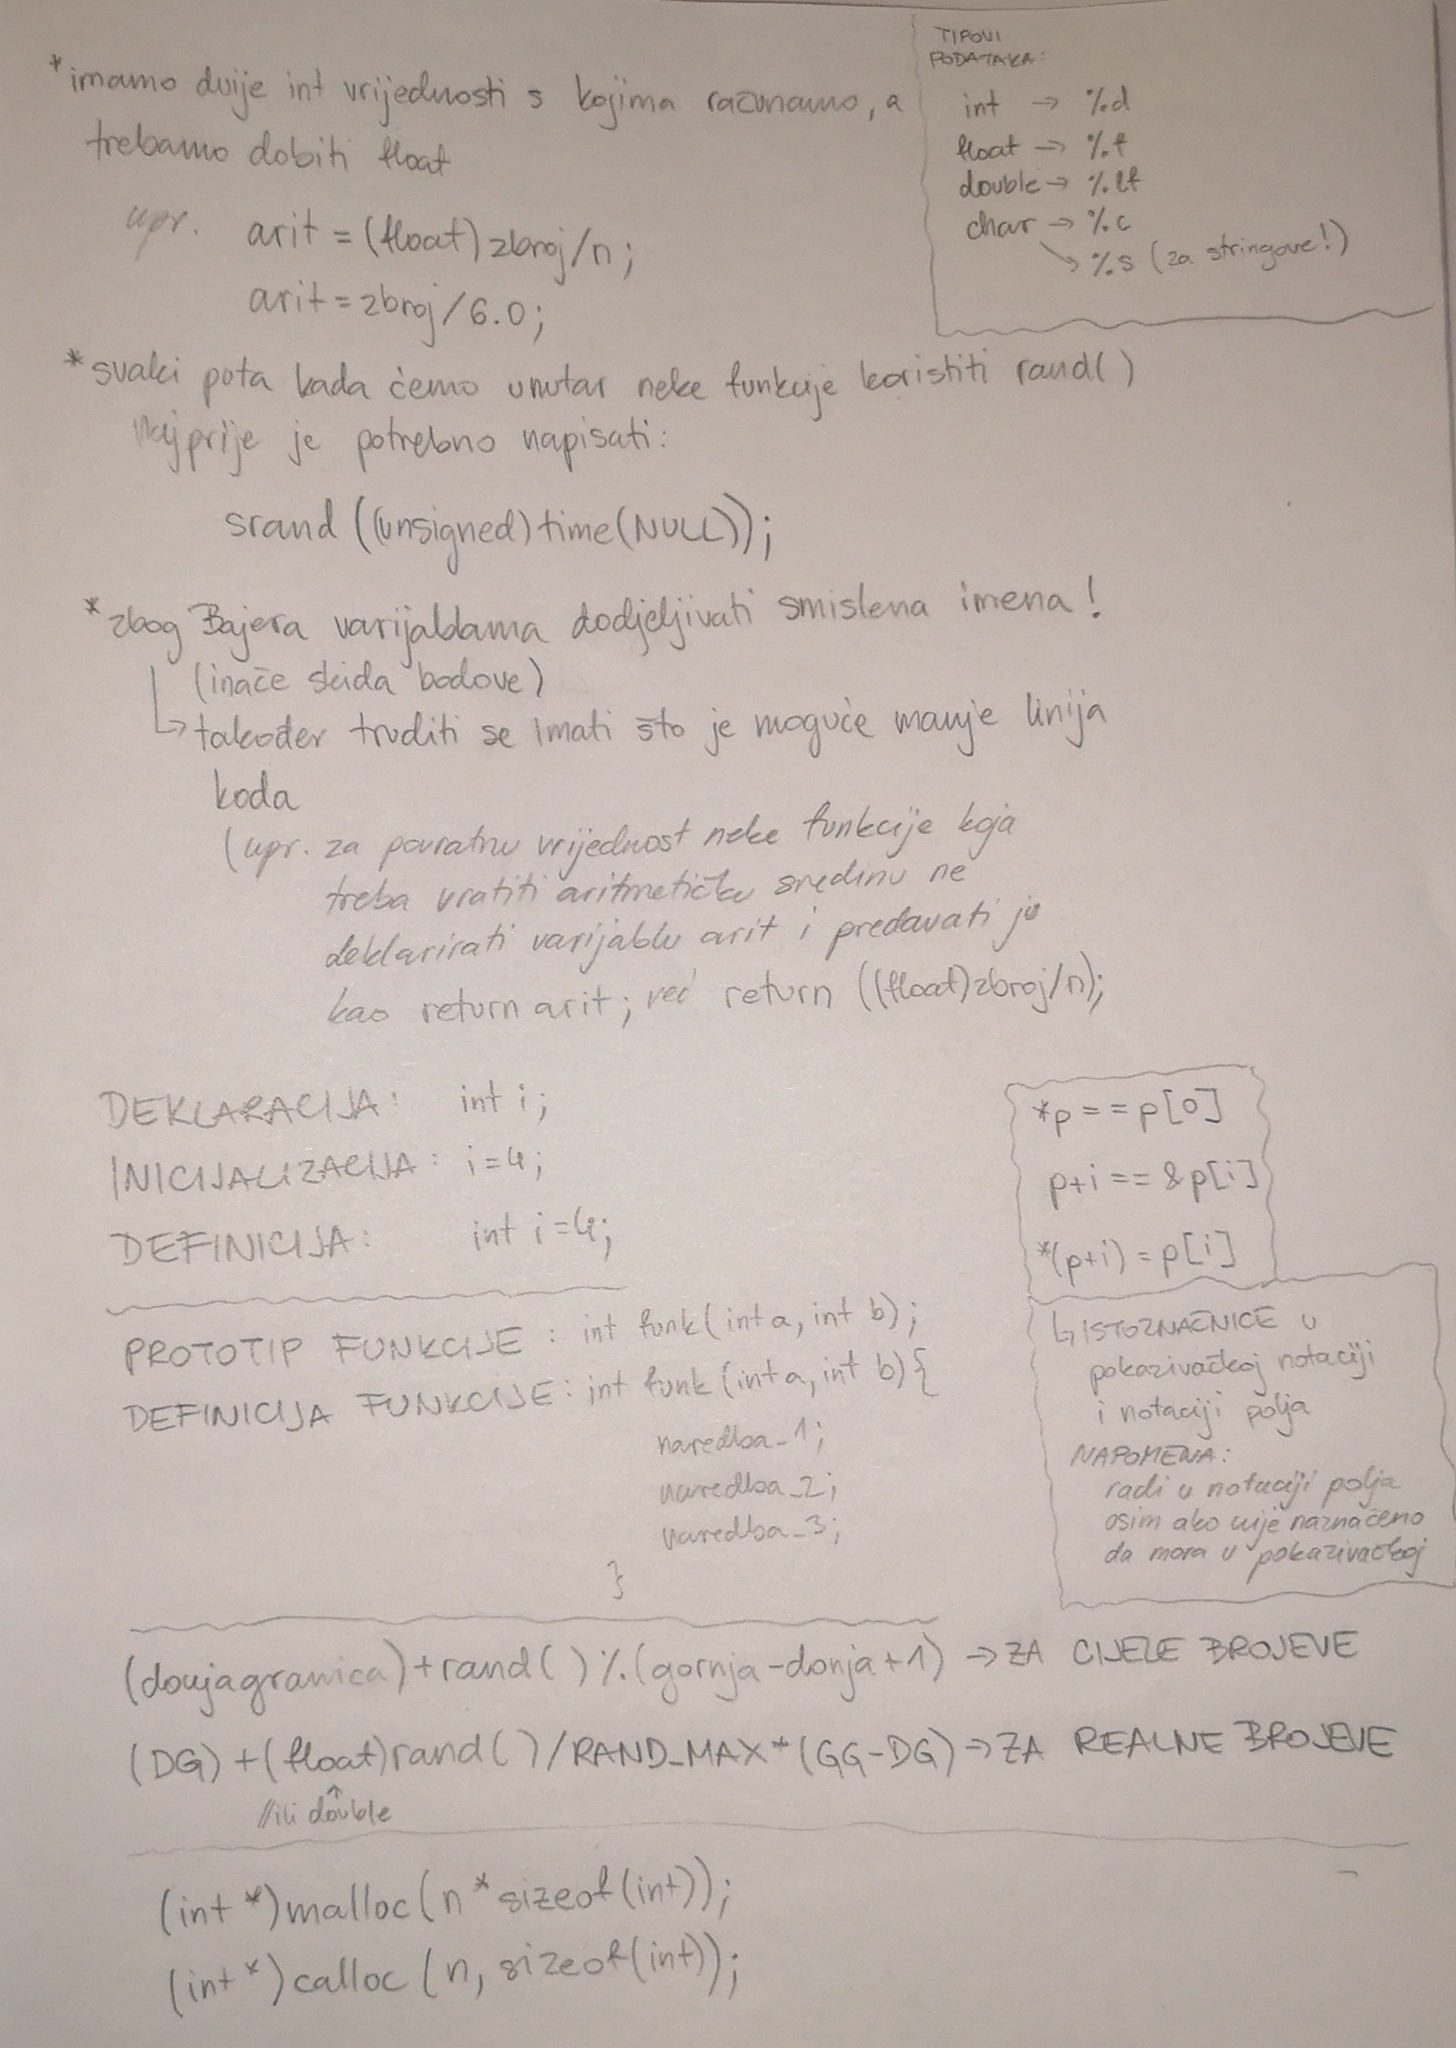 *imamo dvije int vrijednosti s kojima računamo, a
trebamo dobiti float
npr. arit = (float) zbroj/n;
arit = zbroj/6.0;
TIPOVI
PODATAKA:
int → %d
float → %f
double → %lf
char → %c
↘ %s (za stringove!)
*svaki puta kada ćemo unutar neke funkcije koristiti rand()
najprije je potrebno napisati:
srand ((unsigned) time(NULL));
*zbog Bajera varijablama dodjeljivati smislena imena!
(inače skida bodove)
↳ također truditi se imati što je moguće manje linija
koda
(npr. za povratnu vrijednost neke funkcije koja
treba vratiti aritmetičku sredinu ne
deklarirati varijablu arit i predavati ju
kao return arit; već return ((float)zbroj/n);
DEKLARACIJA: int i;
INICIJALIZACIJA: i=4;
DEFINICIJA: int i=4;
*p == p[0]
p+i == &p[i]
*(p+i) = p[i]
↳ ISTOZNAČNICE U
pokazivačkoj notaciji
i notaciji polja
NAPOMENA:
radi u notaciji polja
osim ako nije naznačeno
da mora u pokazivačkoj
PROTOTIP FUNKCIJE: int funk(int a, int b);
DEFINICIJA FUNKCIJE: int funk (int a, int b){
naredba_1;
naredba_2;
naredba_3;
}
(donjagranica)+rand()%(gornja-donja+1) → ZA CIJELE BROJEVE
(DG) + (float)rand()/RAND_MAX*(GG-DG) → ZA REALNE BROJEVE
↑
//ili double
(int *)malloc(n*sizeof(int));
(int *)calloc(n, sizeof(int));